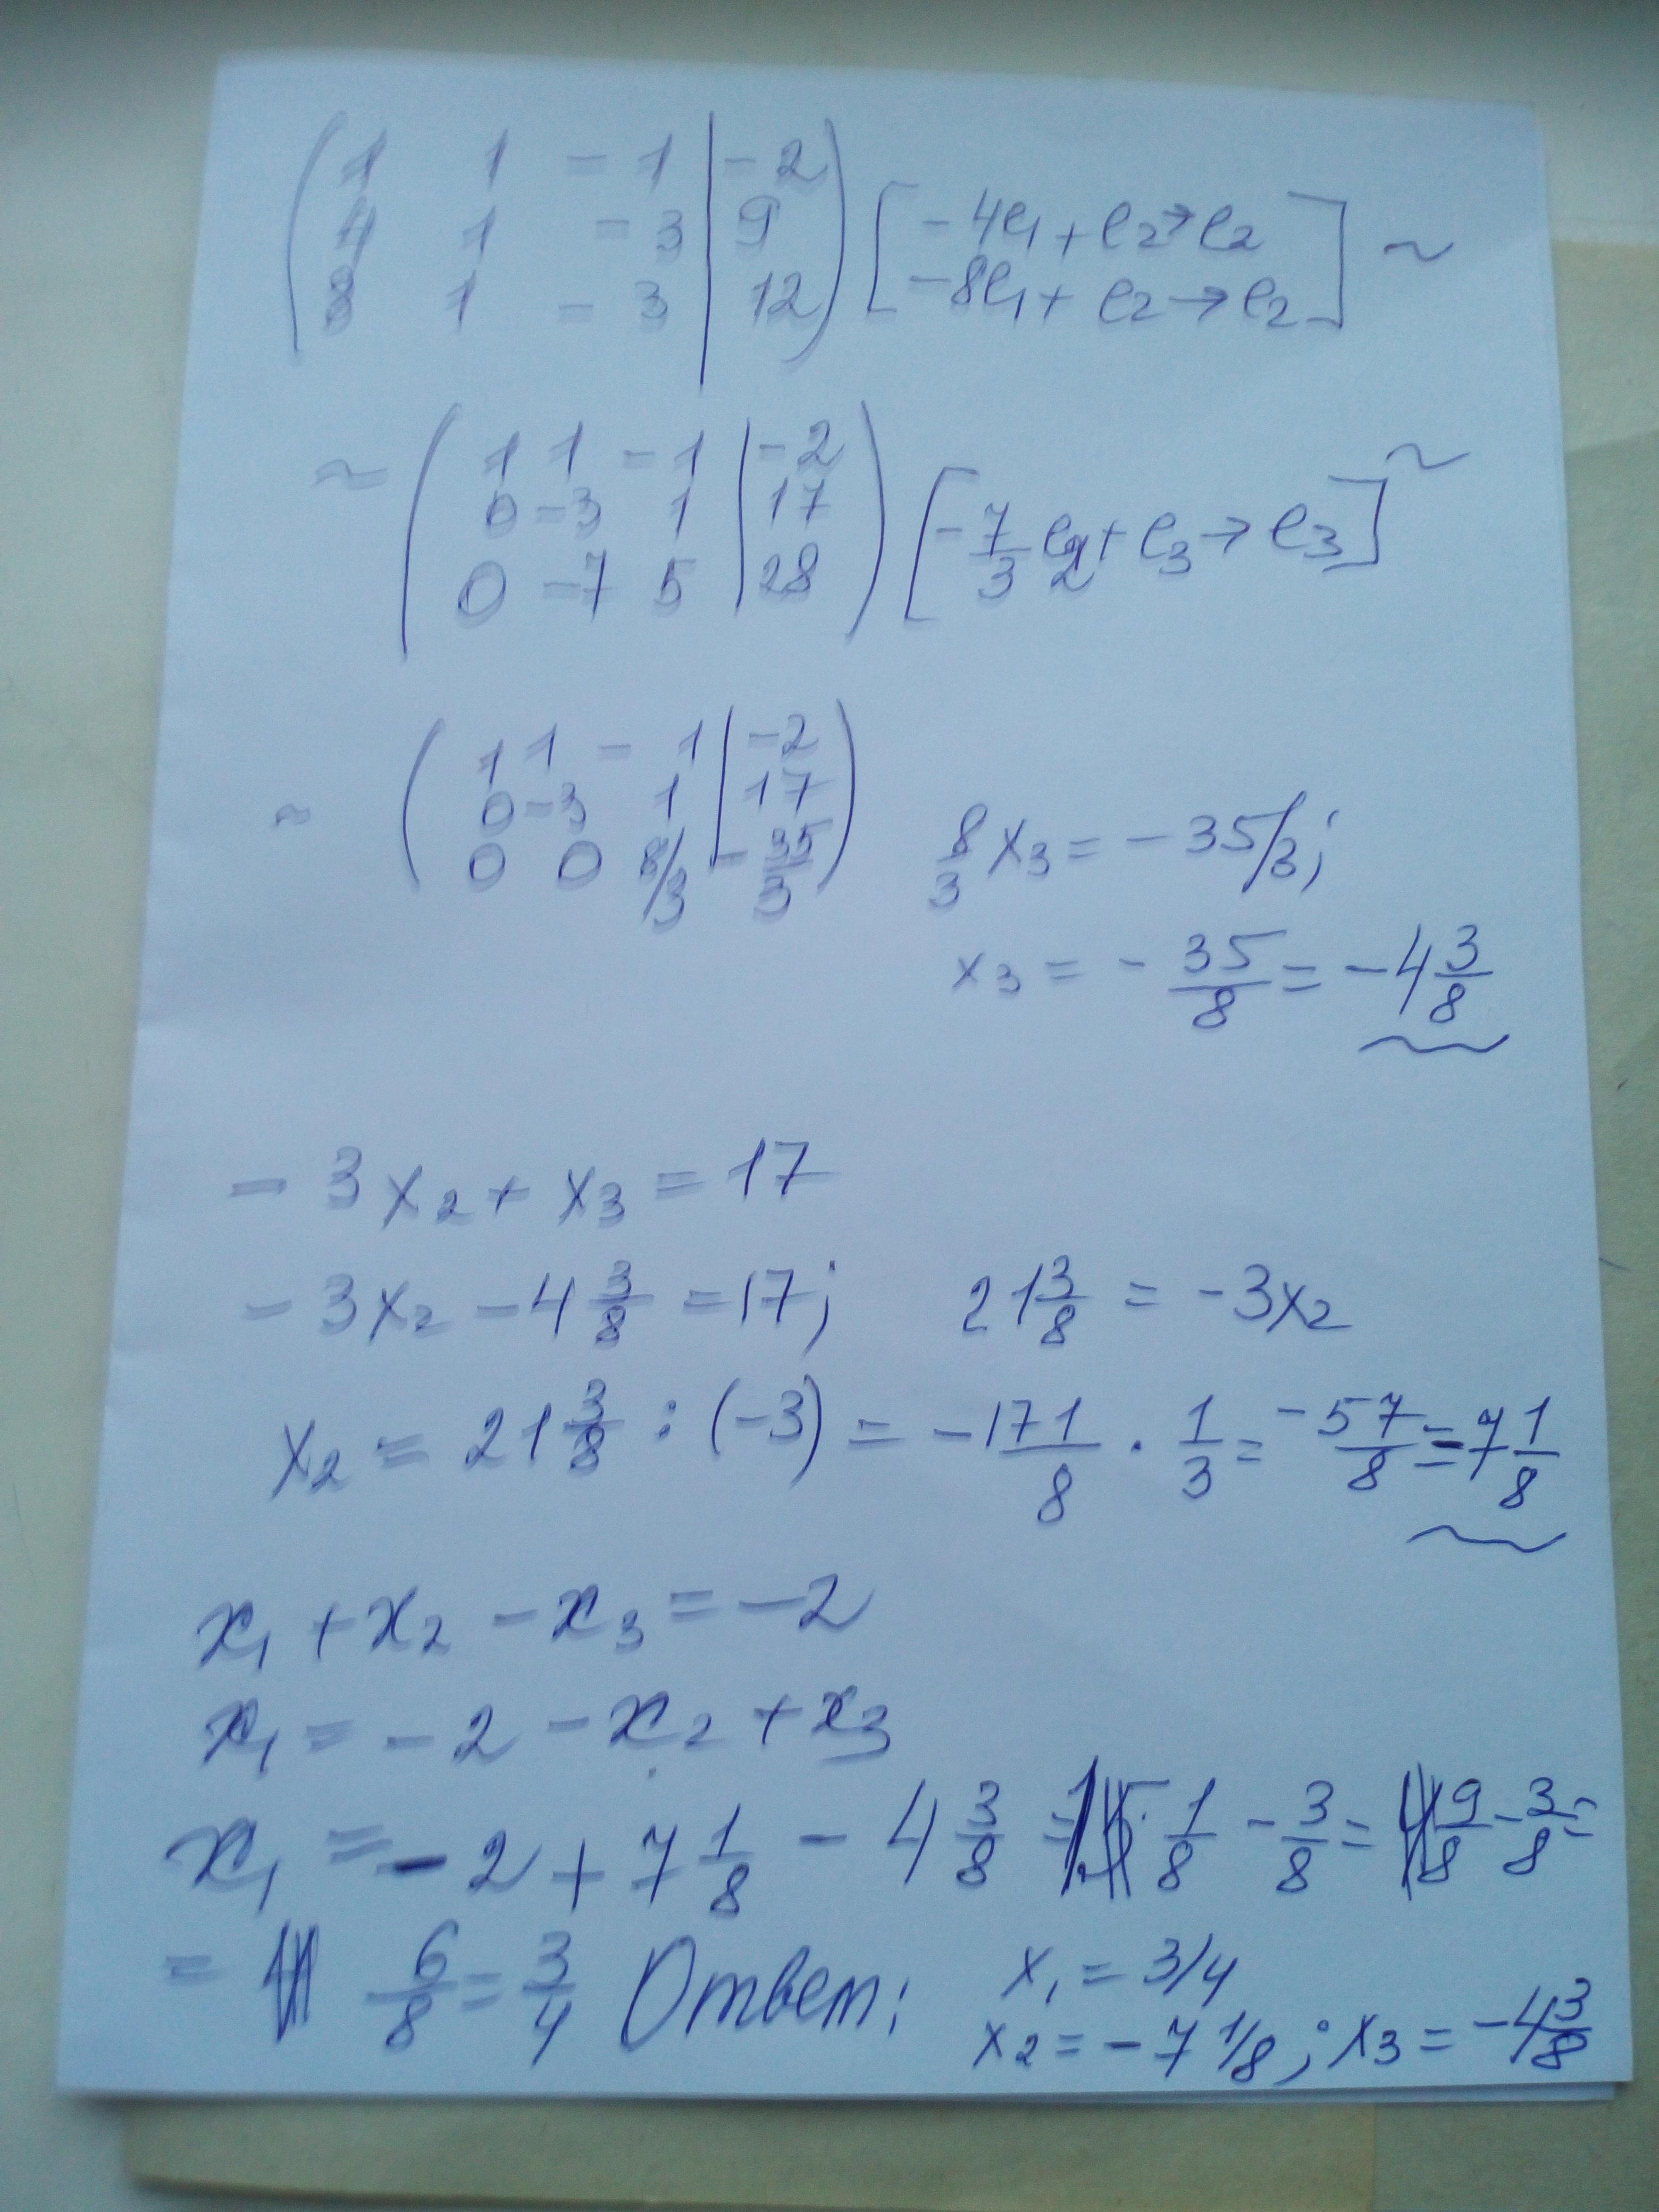 ( 1 1 - 1 | - 2 )
( 4 1 - 3 | 9 ) [ - 4e₁ + e₂ → e₂ ] ~
( 8 1 - 3 | 12 ) [ - 8e₁ + e₂ → e₂ ]
~ ( 1 1 - 1 | - 2 ) ~
( 0 - 3 1 | 17 ) [ - 7/3 e₂ + e₃ → e₃ ]
( 0 - 7 5 | 28 )
( 1 1 - 1 | - 2 )
~ ( 0 - 3 1 | 17 )
( 0 0 8/3 | - 35/3 ) 8/3 x₃ = - 35/3;
x₃ = - 35/8 = - 4 3/8
- 3x₂ + x₃ = 17
- 3x₂ - 4 3/8 = 17; 21 3/8 = - 3x₂
x₂ = 21 3/8 : (-3) = - 171/8 · 1/3 = - 57/8 = - 7 1/8
x₁ + x₂ - x₃ = - 2
x₁ = - 2 - x₂ + x₃
x₁ = - 2 + 7 1/8 - 4 3/8 = 1/8 - 3/8 = 9/8 - 3/8 =
= 6/8 = 3/4 Ответ: x₁ = 3/4
x₂ = - 7 1/8; x₃ = - 4 3/8